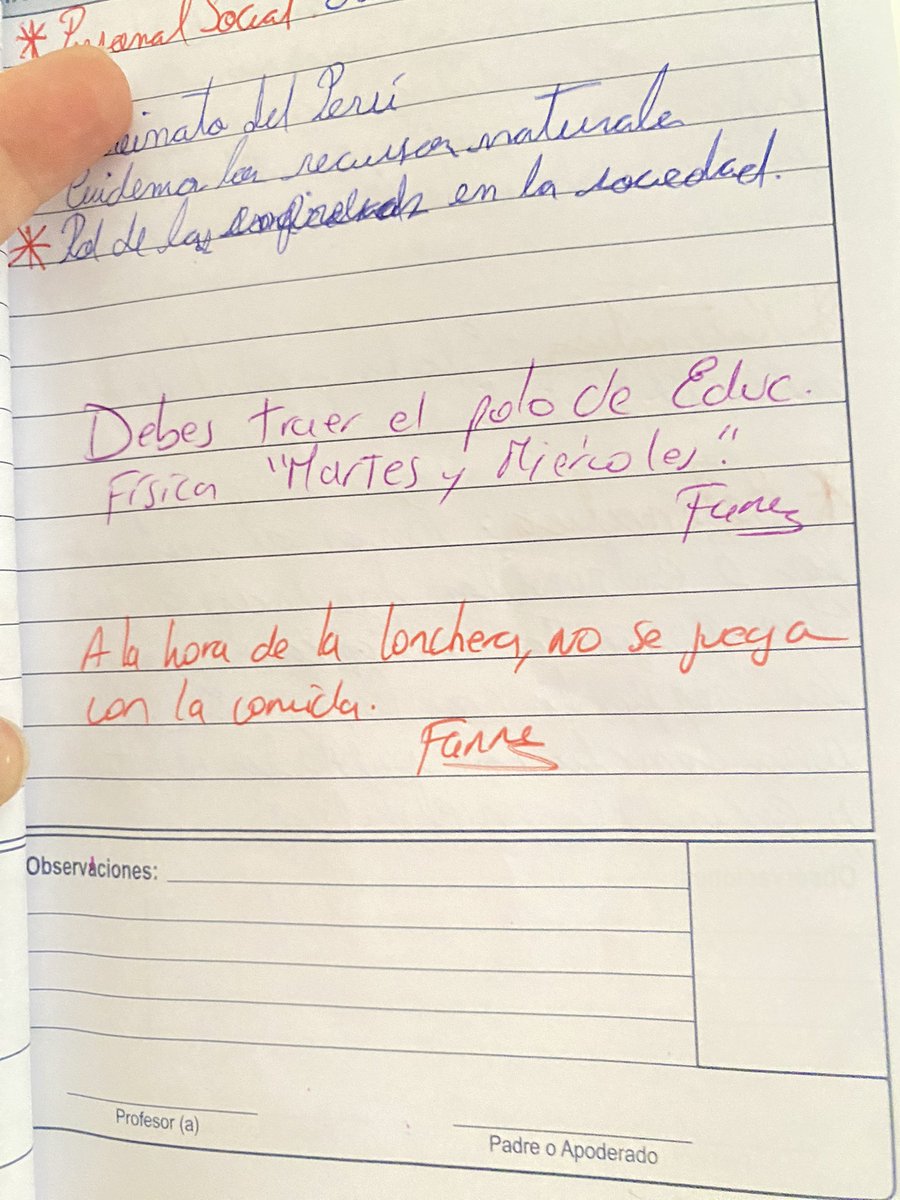 * Personal Social.
einato del Perú
Cuidemo los recursos naturale
* Rol de las en la sociedad.
Debes traer el polo de Educ.
Física "Martes y Miércoles".
A la hora de la lonchera, no se juega
con la comida.
Observaciones:
Profesor (a)
Padre o Apoderado